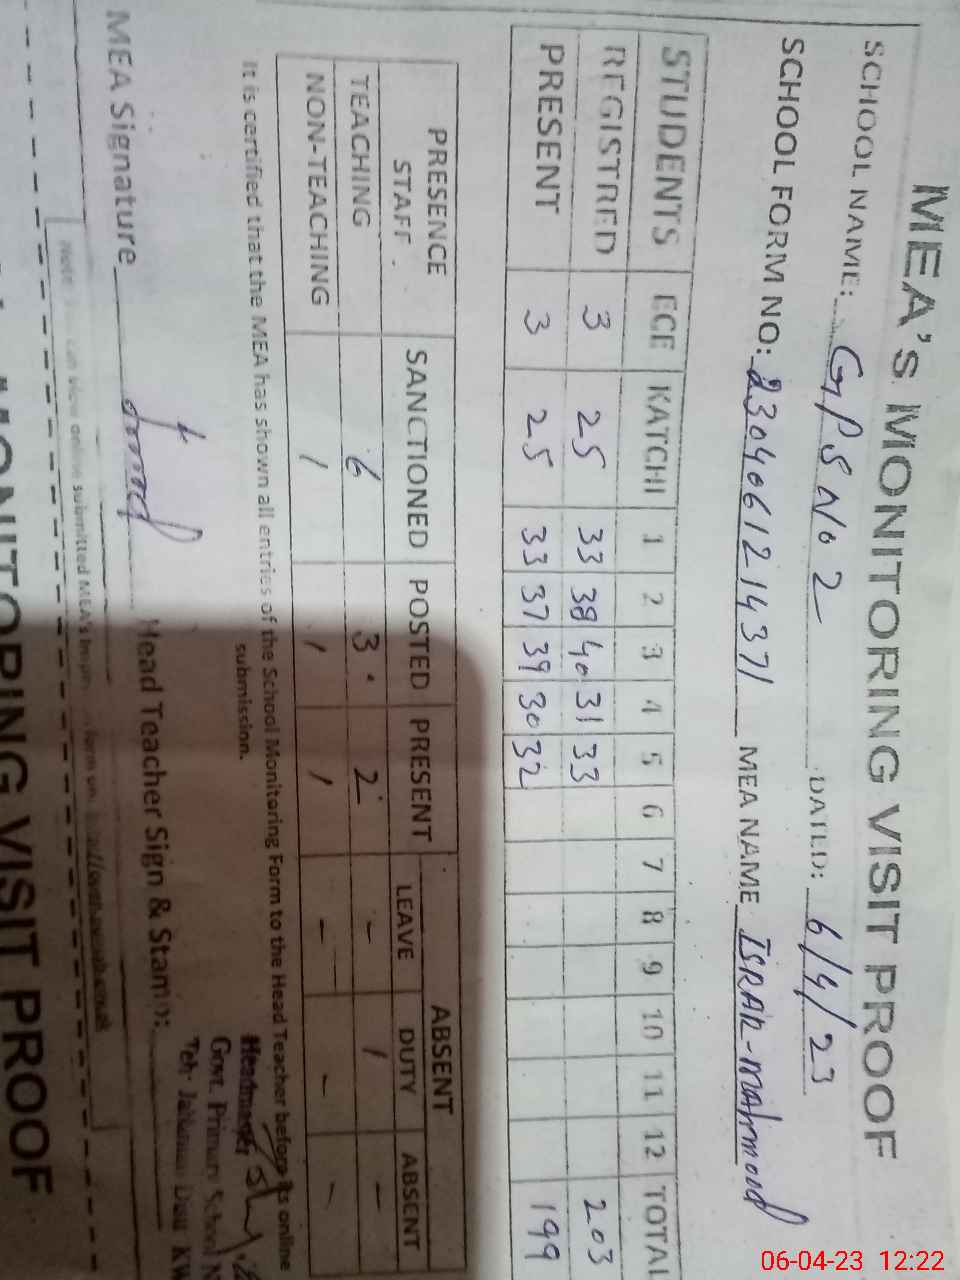 MEA'S MONITORING VISIT PROOF
SCHOOL NAME: GPS No 2 DATED: 6/4/23
SCHOOL FORM NO: 2304061214371 MEA NAME ISRAR-mahmood
STUDENTS ECE KATCHI 1 2 3 4 5 6 7 8 9 10 11 12 TOTAL
REGISTRED 3 25 33 38 40 31 33 203
PRESENT 3 25 33 37 39 30 32 199
PRESENCE STAFF SANCTIONED POSTED PRESENT ABSENT
LEAVE DUTY ABSENT
TEACHING 6 3 2 - 1 -
NON-TEACHING 1 1 1 - - -
It is certified that the MEA has shown all entries of the School Monitoring Form to the Head Teacher before its online
submission.
MEA Signature Head Teacher Sign & Stamp:
Headmaster
Govt. Primary School
Teh:
can view online submitted MEA's
MONITORING VISIT PROOF
06-04-23 12:22